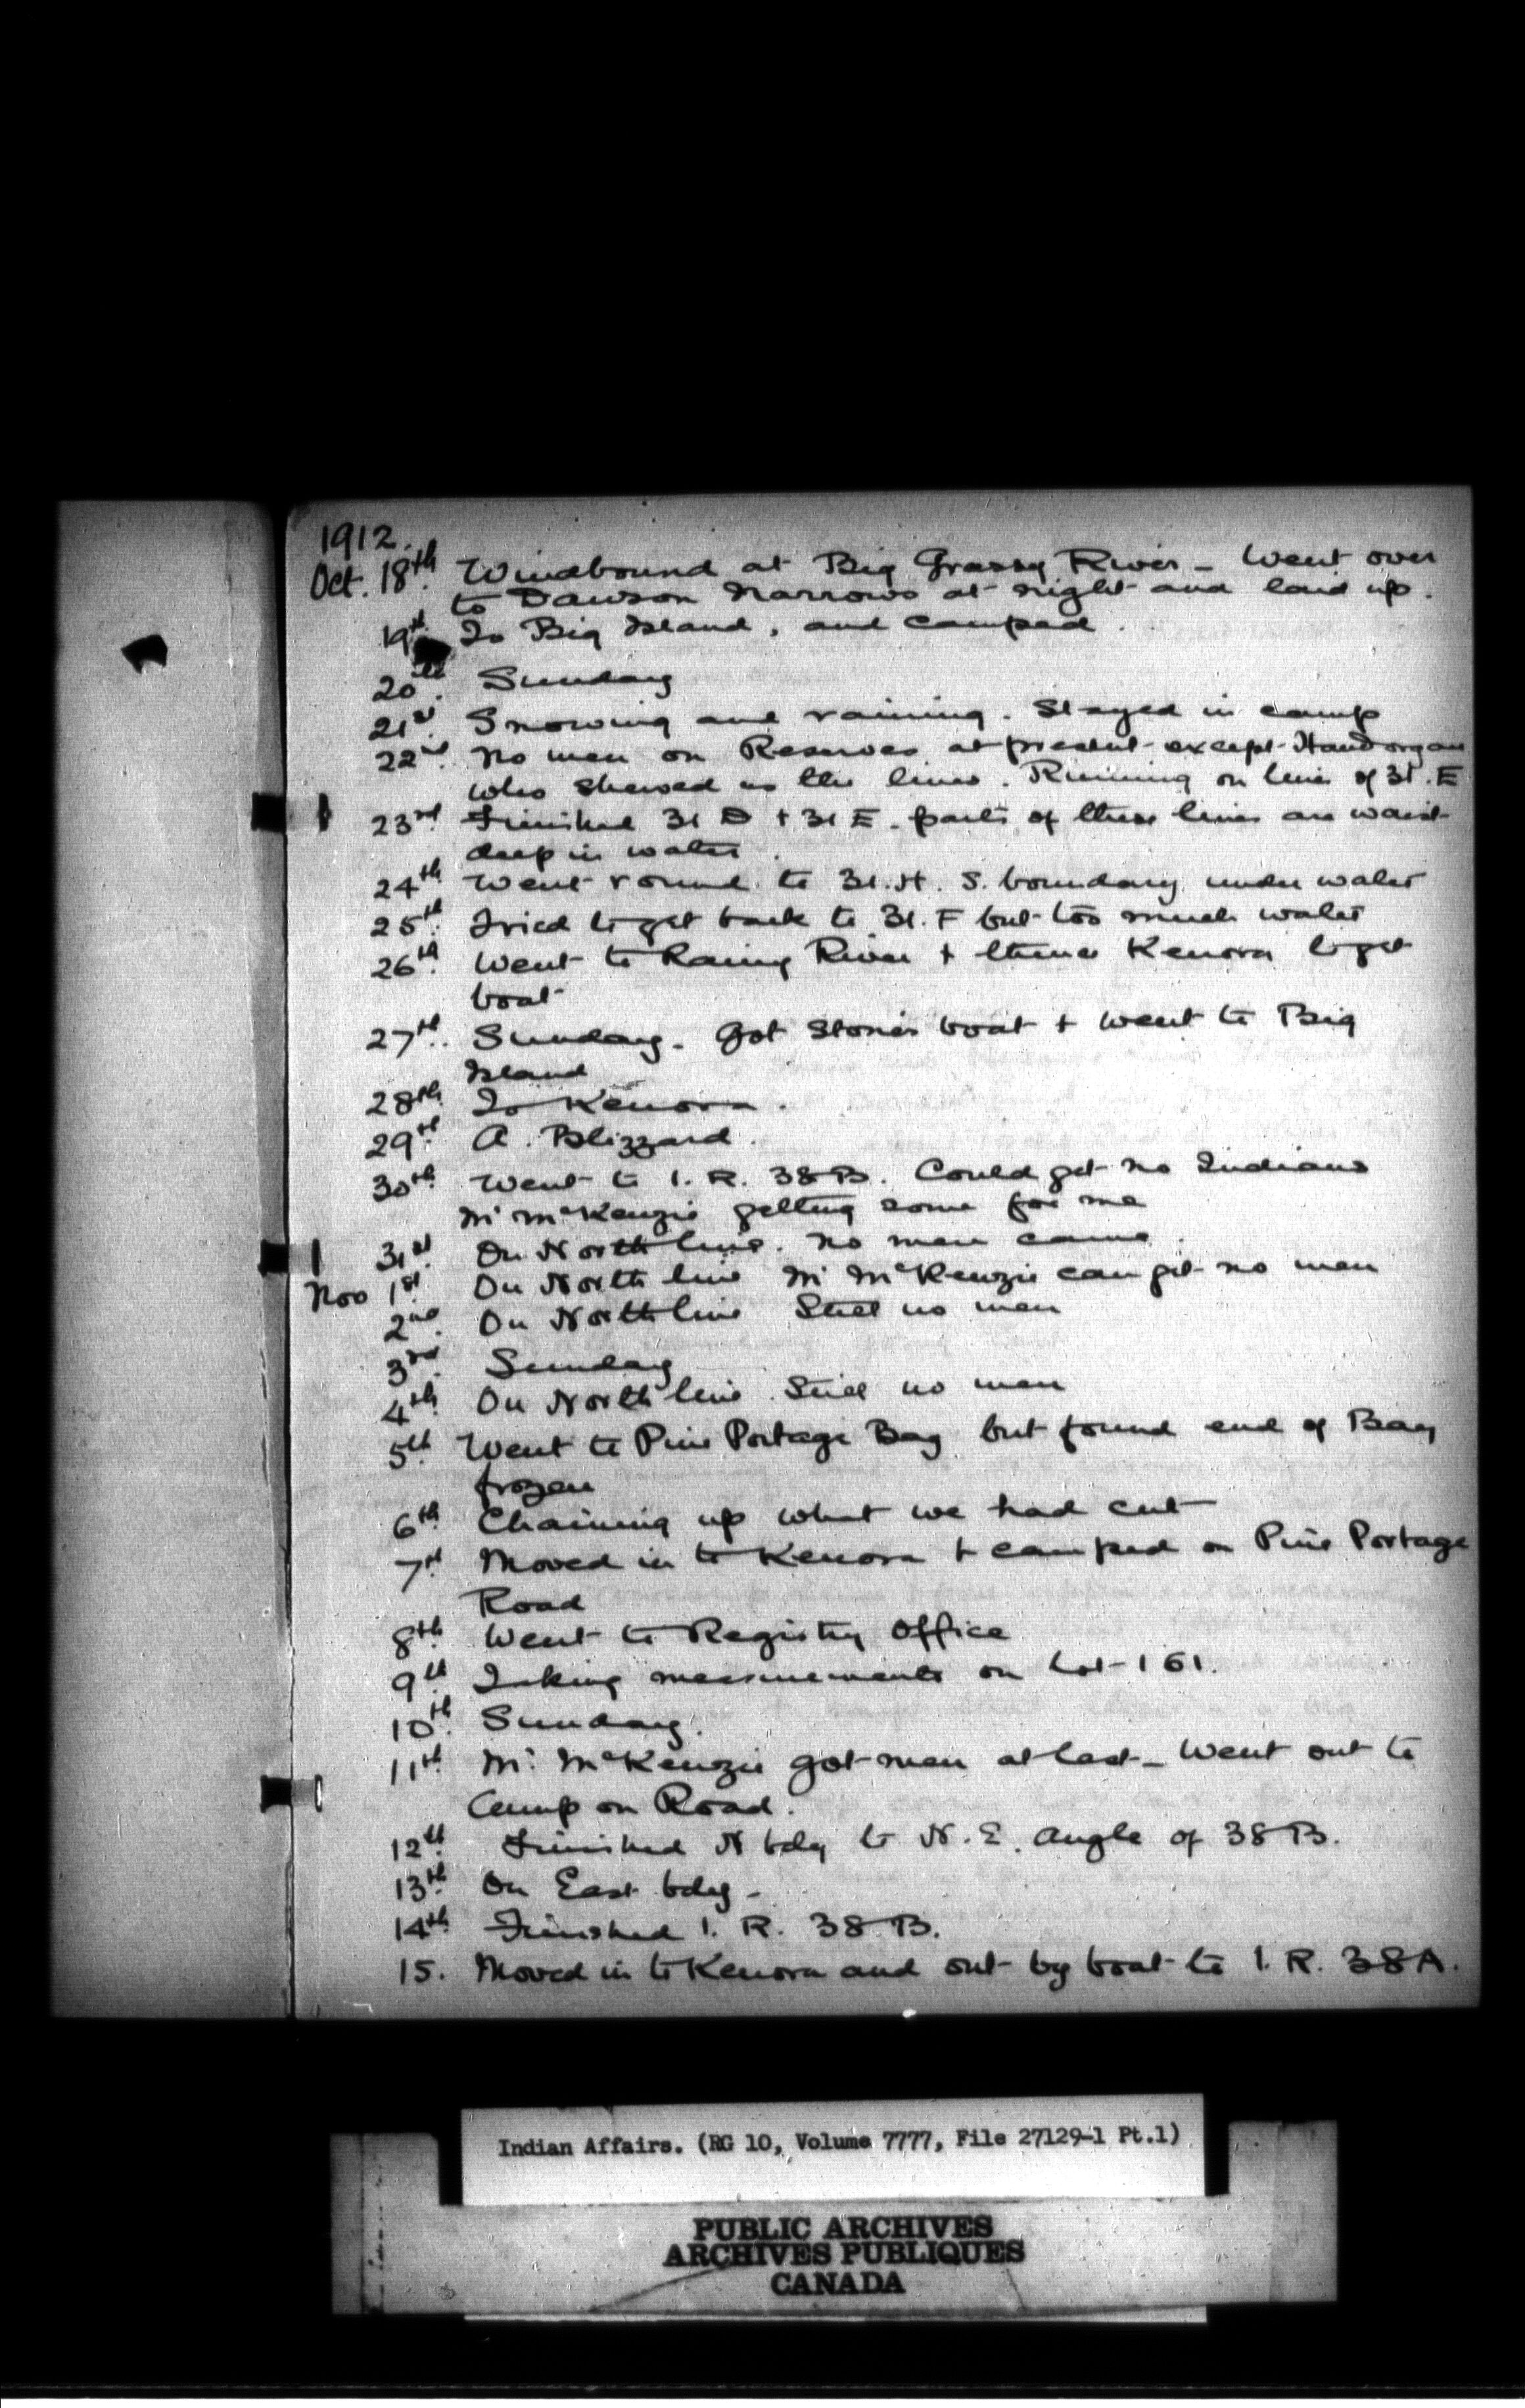 1912.
Oct. 18th. Windbound at Big Grassy River - Went over
to Dawson Narrows at night and laid up.
19th. To Big Island, and camped.
20th. Sunday
21st. Snowing and raining. Stayed in camp
22nd. No men on Reserves at present except Handorgan
who shewed us the lines. Running on line of 31.E
23rd. Finished 31 D + 31 E. parts of these lines are waist
deep in water.
24th. Went round to 31.H. S. boundary under water
25th. Tried to get back to 31.F but too much water
26th. Went to Rainy River + thence Kenora to get
boat
27th. Sunday. Got Stones boat + went to Big
Island
28th. To Kenora.
29th. A. Blizzard.
30th. Went to I. R. 38 B. Could get no Indians
Mr McKenzie getting some for me
31st. On North line. No men came.
Nov 1st. On North line Mr McKenzie can get no men
2nd. On North line Still no men
3rd. Sunday
4th. On North line. Still no men
5th. Went to Pine Portage Bay but found end of Bay
frozen
6th. Chaining up what we had cut
7th. Moved in to Kenora + camped on Pine Portage
Road
8th. Went to Registry Office
9th. Taking measurements on Lot 161.
10th. Sunday.
11th. Mr. McKenzie got men at last - Went out to
Camp on Road.
12th. Finished N bdy to N. E. Angle of 38 B.
13th. On East bdy -
14th. Finished I. R. 38 B.
15. Moved in to Kenora and out by boat to I. R. 38A.
Indian Affairs. (RG 10, Volume 7777, File 27129-1 Pt.1)
PUBLIC ARCHIVES
ARCHIVES PUBLIQUES
CANADA